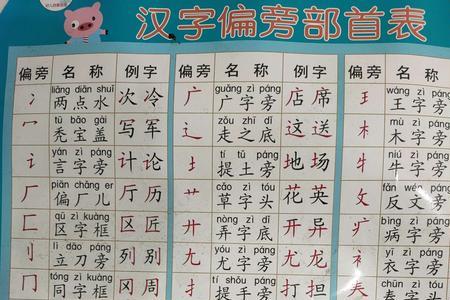 汉字偏旁部首表
偏旁 名称 例字 偏旁 名称 例字 偏旁 名称
liǎng diǎn shuǐ guǎng zì páng wáng zì páng
冫 两点水 次 冷 广 广字旁 店 席 王 王字旁
tū bǎo gài zǒu zhī dǐ mù zì páng
冖 秃宝盖 写 军 辶 走之底 这 送 木 木字旁
yán zì páng tí tǔ páng niú zì páng
讠 言字旁 计 论 土 提土旁 地 场 牛 牛字旁
piān chǎng er cǎo zì tóu fǎn wén páng
厂 偏厂儿 厅 历 艹 草字头 花 英 攵 反文旁
qū zì kuàng nòng zì dǐ bìng zì páng
匚 区字框 区 匠 廾 弄字底 开 异 疒 病字旁
lì dāo páng yóu zì páng yī zì páng
刂 立刀旁 列 别 尢 尤字旁 尤 龙 衤 衣字旁
tóng zì kuàng tí shǒu páng
冂 同字框 冈 周 扌 提手旁 打 担